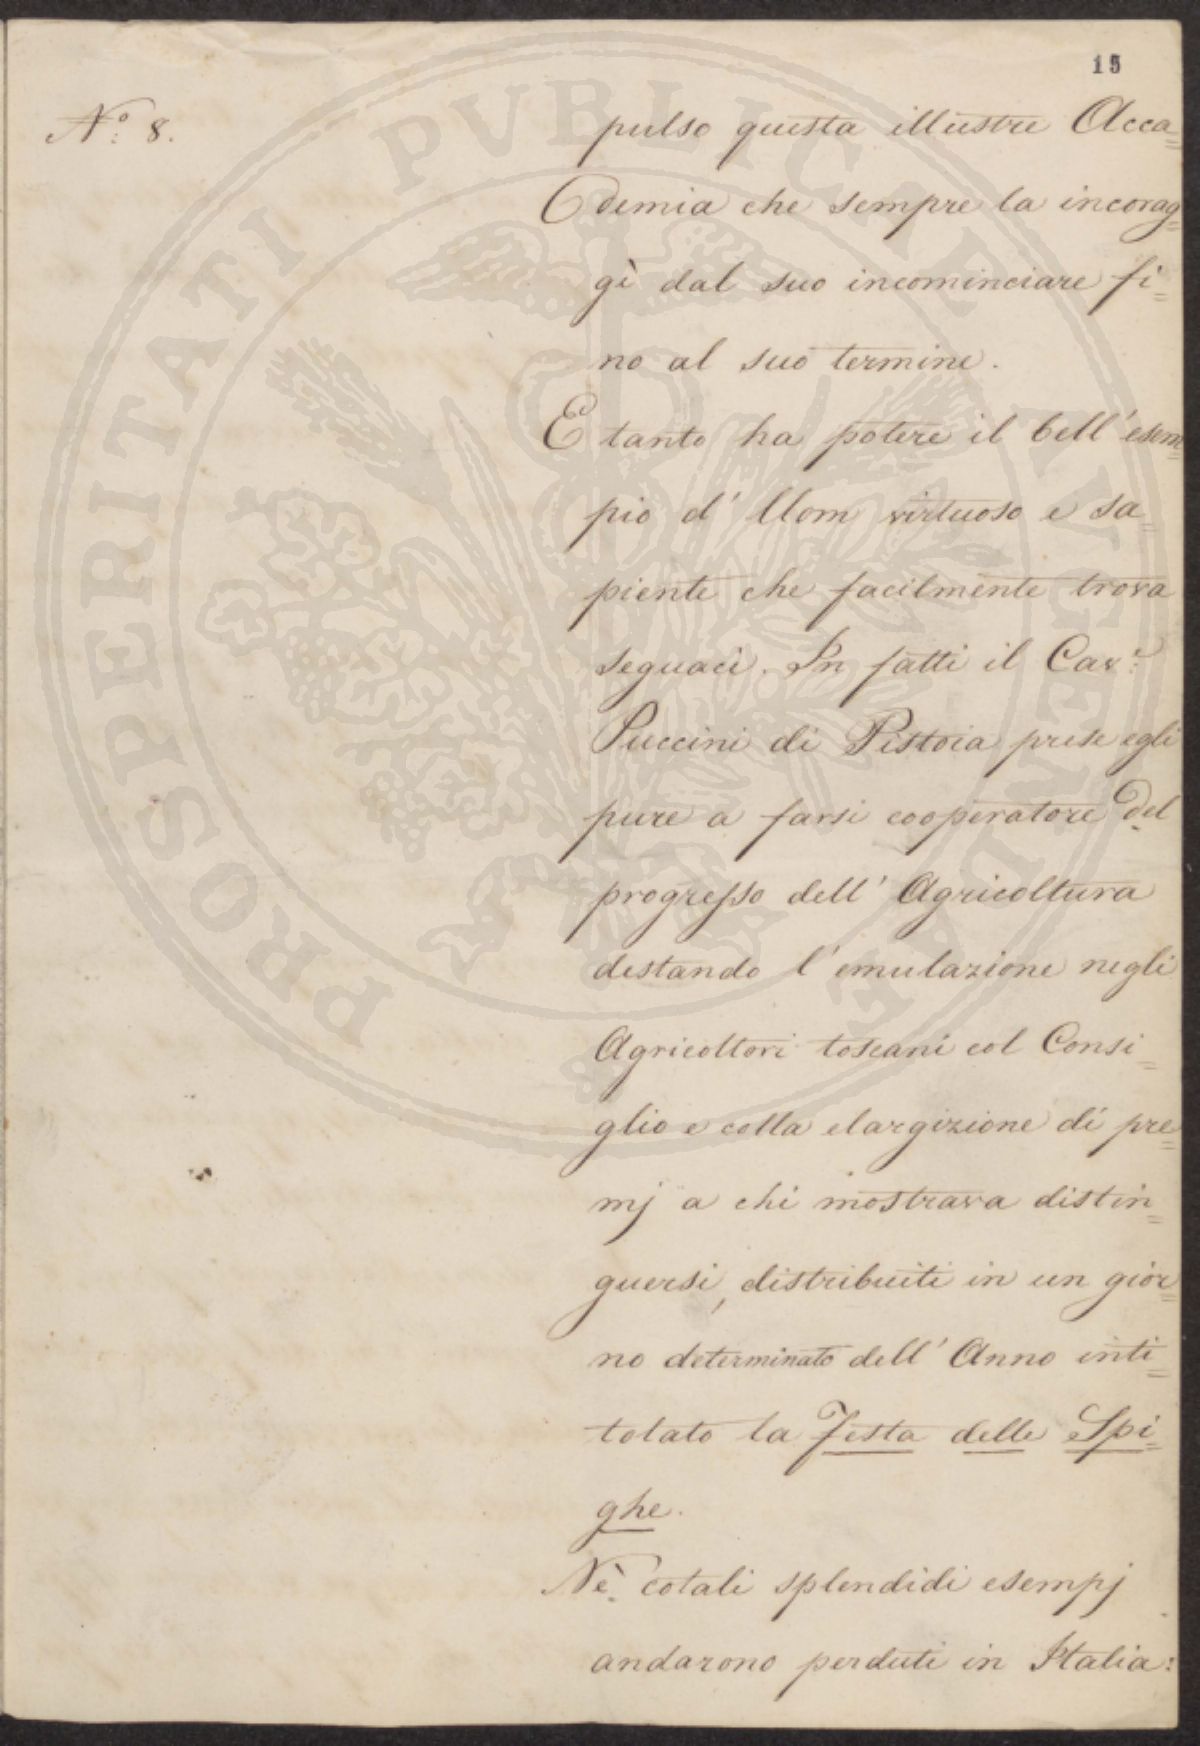 15
N.º 8.
pulso questa illustre Acca=
demia che sempre la incorag=
gì dal suo incominciare fi=
no al suo termine.
E tanto ha potere il bell'esem=
pio d'Uom virtuoso e sa=
piente che facilmente trova
seguaci. In fatti il Cav.r
Puccini di Pistoia prese egli
pure a farsi cooperatore del
progresso dell'Agricoltura
destando l'emulazione negli
Agricoltori toscani col Consi=
glio e colla elargizione di pre=
mj a chi mostrava distin=
guersi, distribuiti in un gior=
no determinato dell'Anno inti=
tolato la Festa delle Spi=
ghe.
Nè cotali splendidi esempj
andarono perduti in Italia:
PROSPERITATI PVBLICAE AVGENDAE